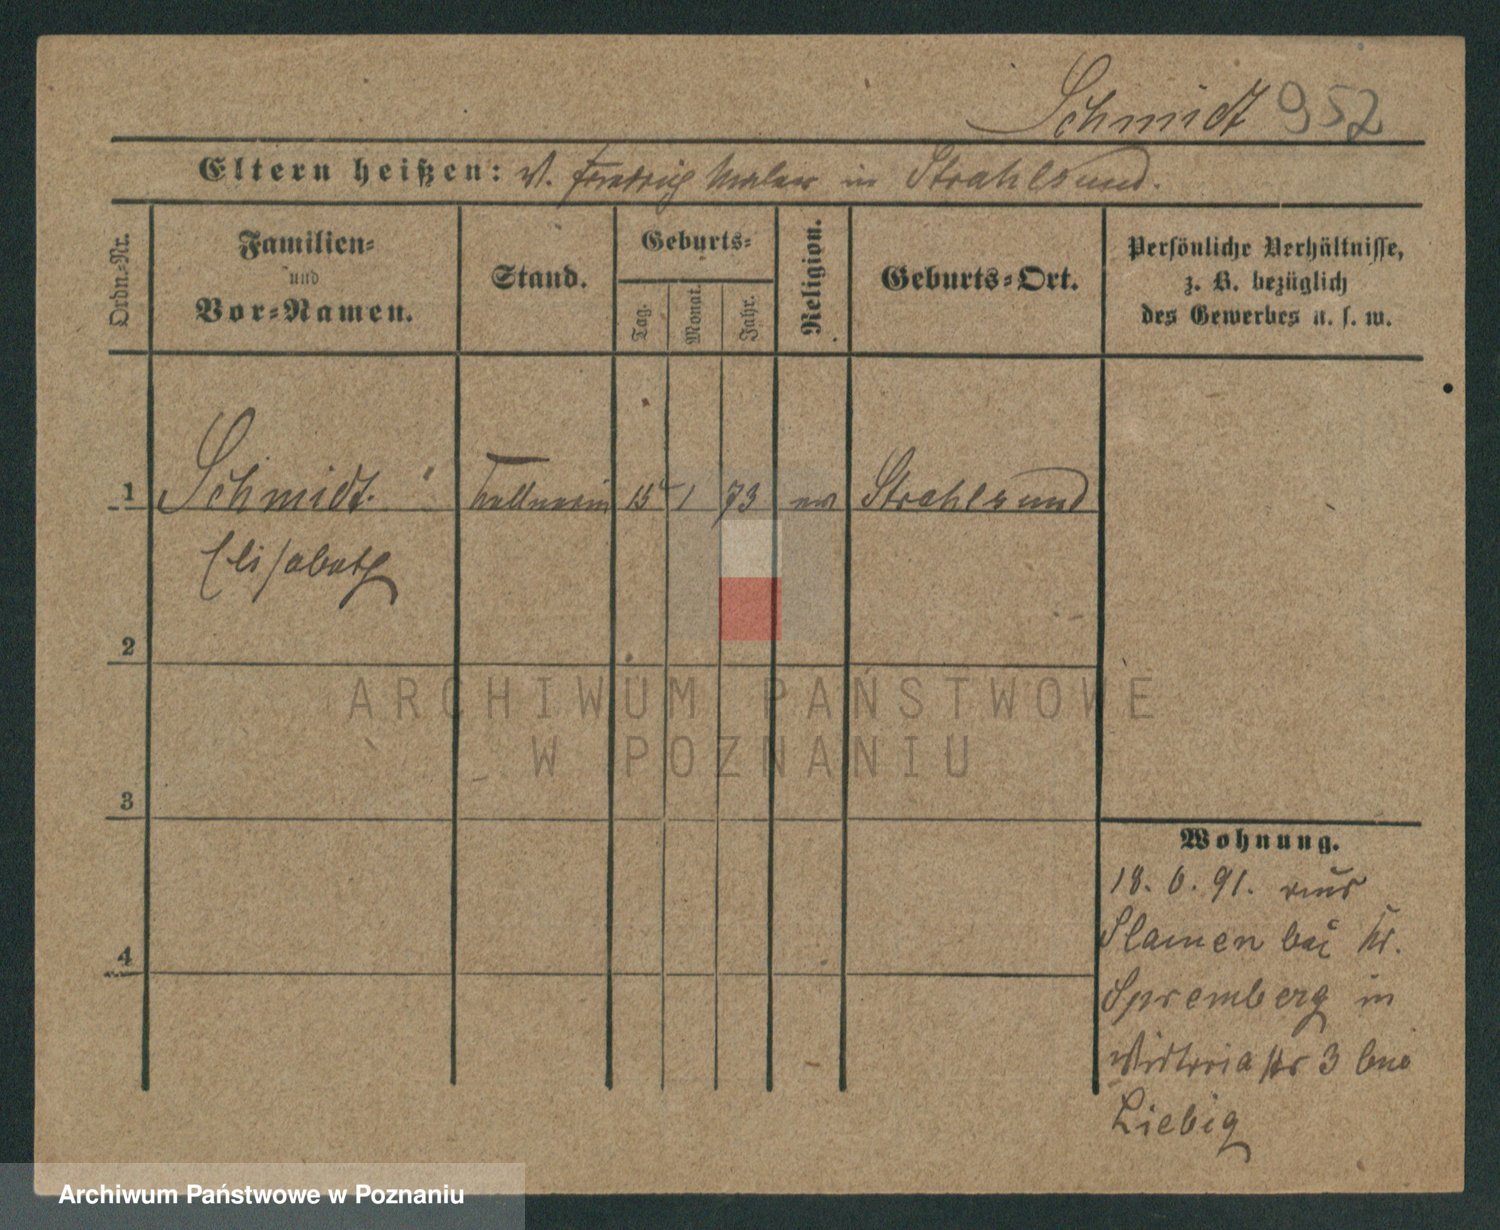 Schmidt 952
Eltern heißen: V. Friedrich Maler in Strahlsund.
Ordn.-Nr.
Familien-
und
Vor-Namen.
Stand.
Geburts-
Tag.
Monat.
Jahr.
Religion.
Geburts-Ort.
Persönliche Verhältnisse,
z. B. bezüglich
des Gewerbes u. s. w.
1 Schmidt Kellnerin 15 1 73 ev Strahlsund
Elisabeth
2
3
4
Wohnung.
18. 6. 91. aus
Slamen bei Kr.
Spremberg in
Victoria str 3 bei
Liebig
ARCHIWUM PAŃSTWOWE
W POZNANIU
Archiwum Państwowe w Poznaniu